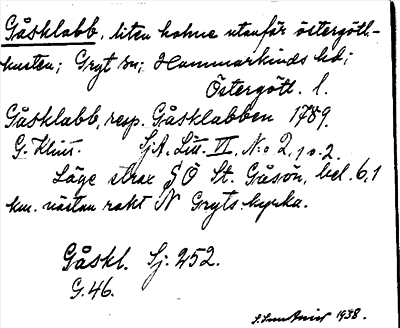 Gåsklabb, liten holme utanför östergöt-
kusten; Gryt sn; Hammarkinds hd;
Östergötl. l.
Gåsklabb, resp. Gåsklabben 1789.
G. Klint. Sj.A. Litt. VI, N:o 2, 1 o. 2.
Läge strax SÖ St. Gåsön, bel. 6,1
km. nästan rakt N Gryts kyrka.
Gåskl. Sj. 252.
G. 46.
1938.